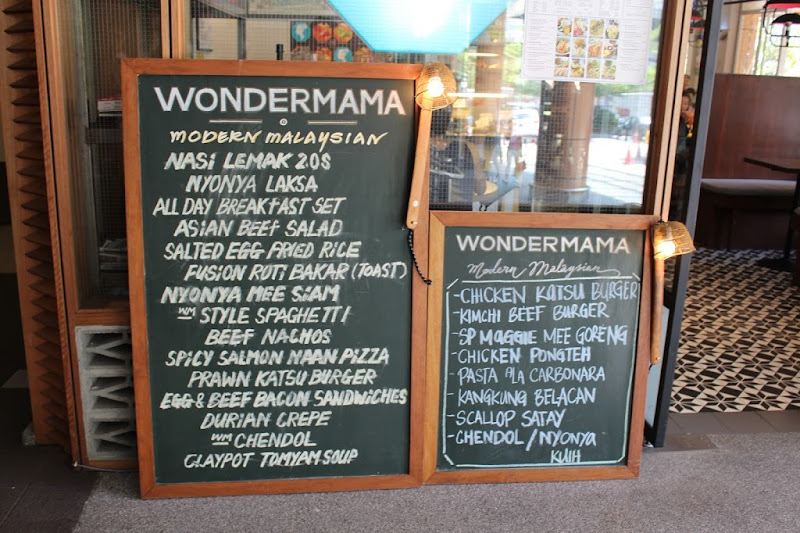 WONDERMAMA
MODERN MALAYSIAN
NASI LEMAK 20S
NYONYA LAKSA
ALL DAY BREAKFAST SET
ASIAN BEEF SALAD
SALTED EGG FRIED RICE
FUSION ROTI BAKAR (TOAST)
NYONYA MEE SIAM
WM STYLE SPAGHETTI
BEEF NACHOS
SPICY SALMON NAAN PIZZA
PRAWN KATSU BURGER
EGG & BEEF BACON SANDWICHES
DURIAN CREPE
WM CHENDOL
CLAYPOT TOMYAM SOUP
WONDERMAMA
Modern Malaysian
-CHICKEN KATSU BURGER
-KIMCHI BEEF BURGER
-SP MAGGIE MEE GORENG
-CHICKEN PONGTEH
-PASTA A'LA CARBONARA
-KANGKUNG BELACAN
-SCALLOP SATAY
-CHENDOL / NYONYA
KUIH